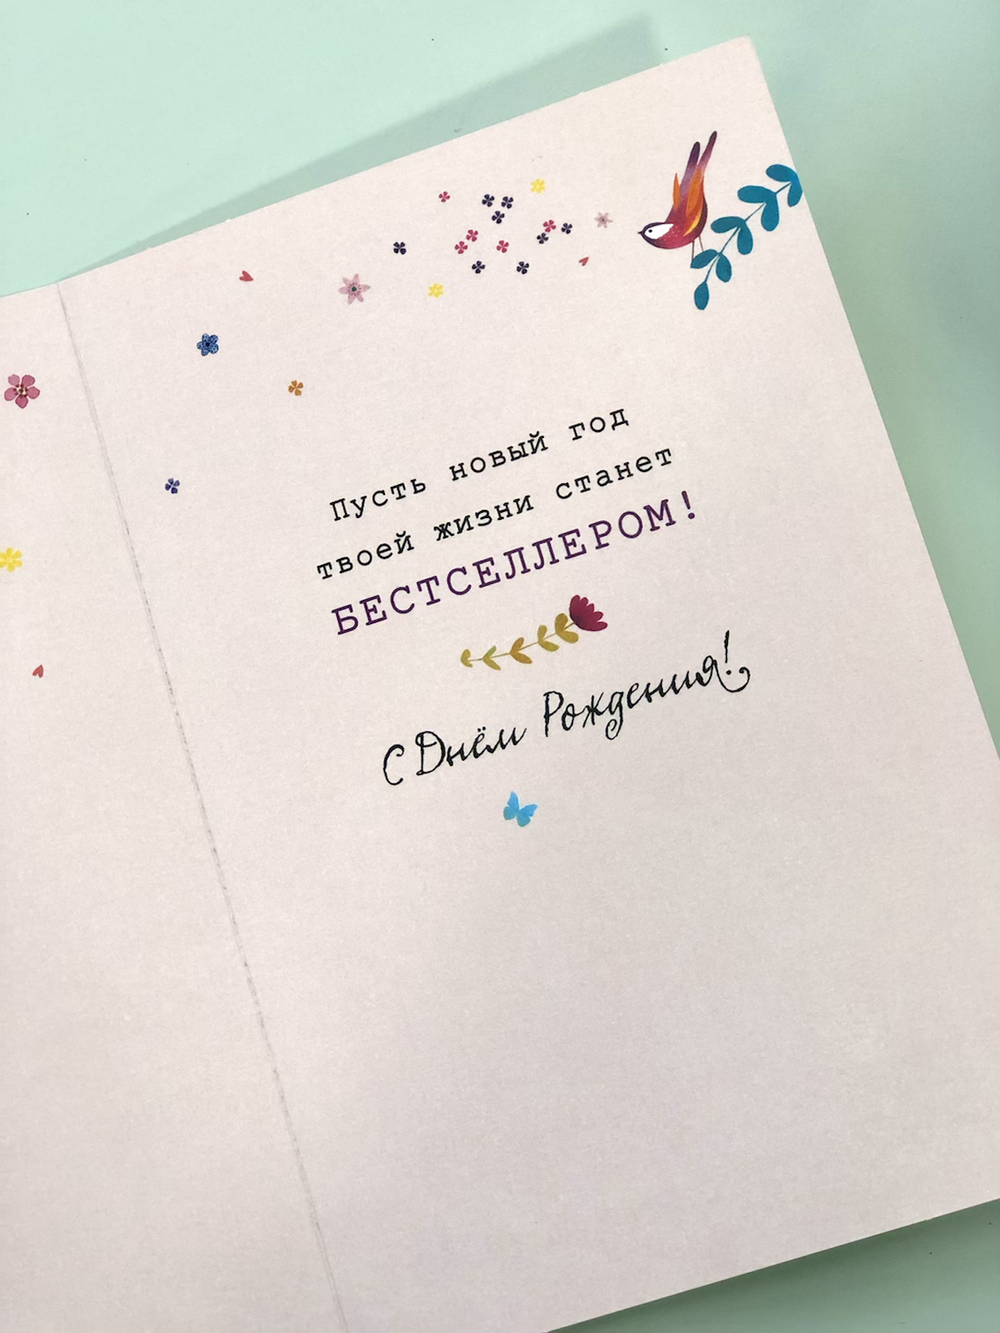 Пусть новый год
твоей жизни станет
БЕСТСЕЛЛЕРОМ!
С Днём Рождения!